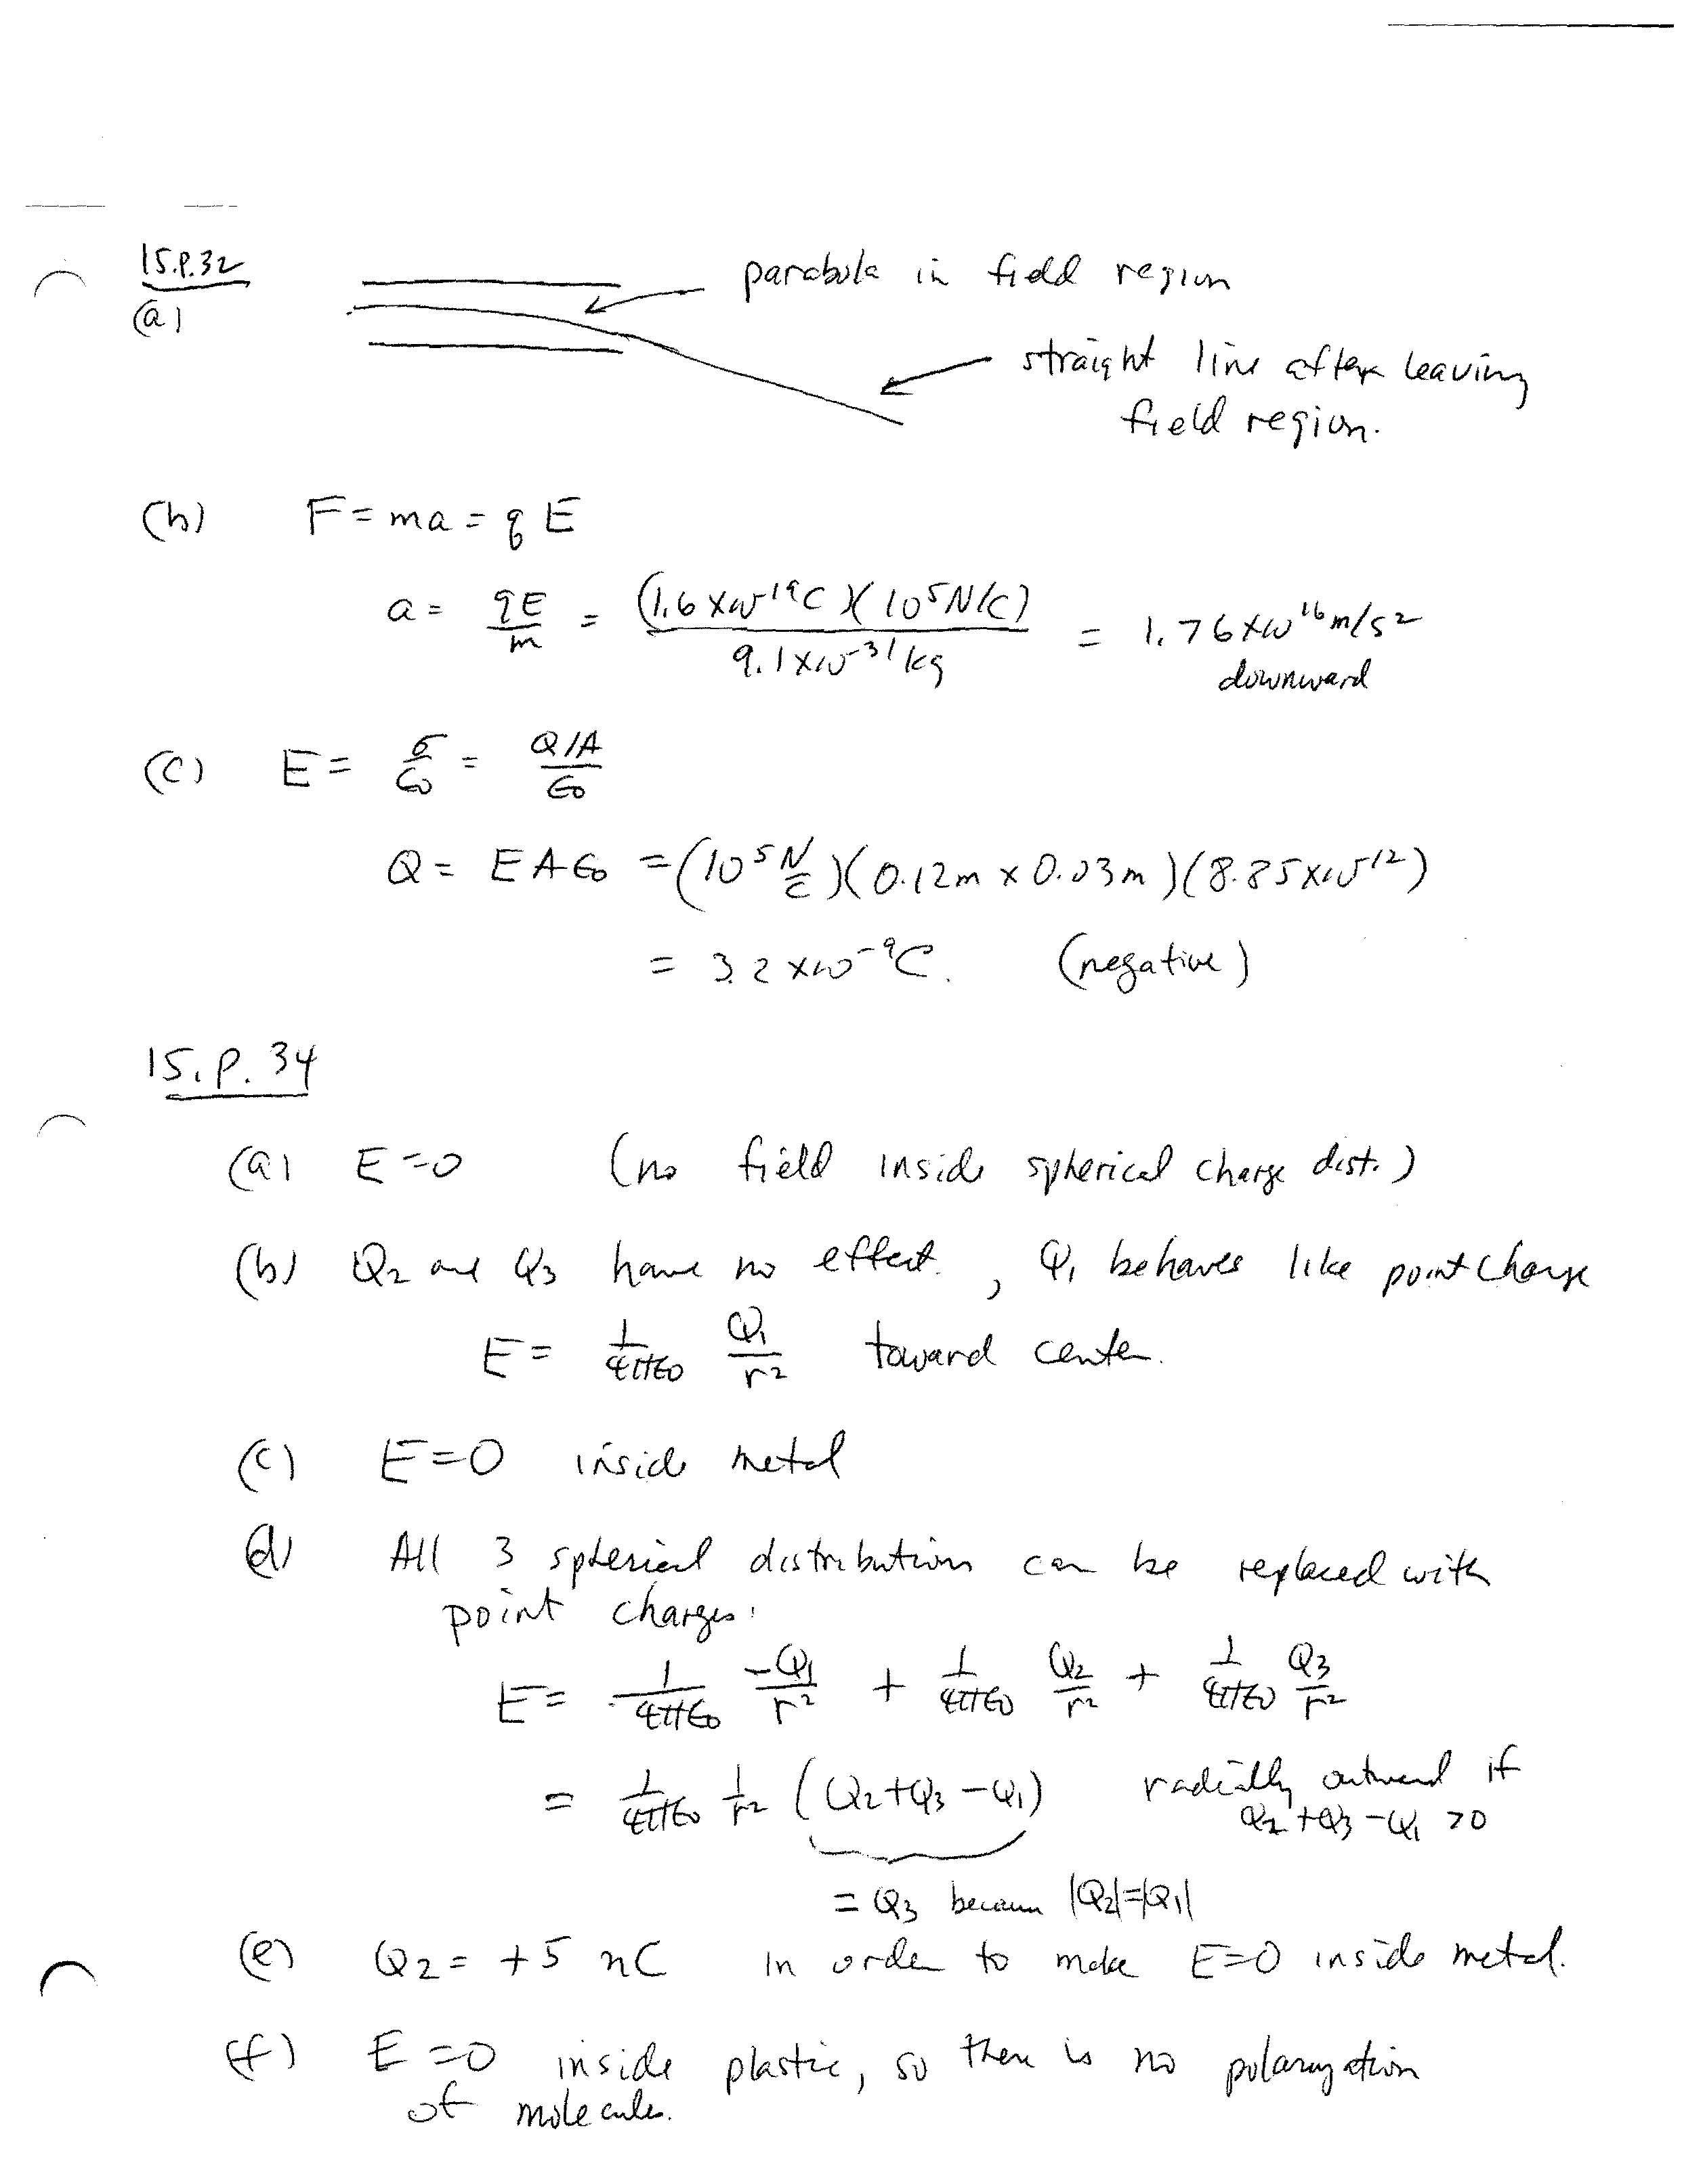 15.P.32
(a)
parabola in field region
straight line after leaving
field region.
(b) F = ma = qE
a = qE/m = (1.6×10⁻¹⁹C)(10⁵N/C)/9.1×10⁻³¹kg = 1.76×10¹⁶m/s²
downward
(c) E = σ/ϵ₀ = Q/A/ϵ₀
Q = EAϵ₀ = (10⁵ N/C)(0.12m × 0.03m)(8.85×10⁻¹²)
= 3.2×10⁻⁹C. (negative)
15.P.34
(a) E=0 (no field inside spherical charge dist.)
(b) Q₂ and Q₃ have no effect. , Q₁ behaves like point charge
E = 1/4πϵ₀ Q₁/r² toward center.
(c) E=0 inside metal
(d) All 3 spherical distributions can be replaced with
point charges:
E = 1/4πϵ₀ -Q₁/r² + 1/4πϵ₀ Q₂/r² + 1/4πϵ₀ Q₃/r²
= 1/4πϵ₀ 1/r² (Q₂+Q₃-Q₁) radially outward if
Q₂+Q₃-Q₁ >0
= Q₃ because |Q₂|=|Q₁|
(e) Q₂ = +5 nC in order to make E=0 inside metal.
(f) E=0 inside plastic, so there is no polarization
of molecules.